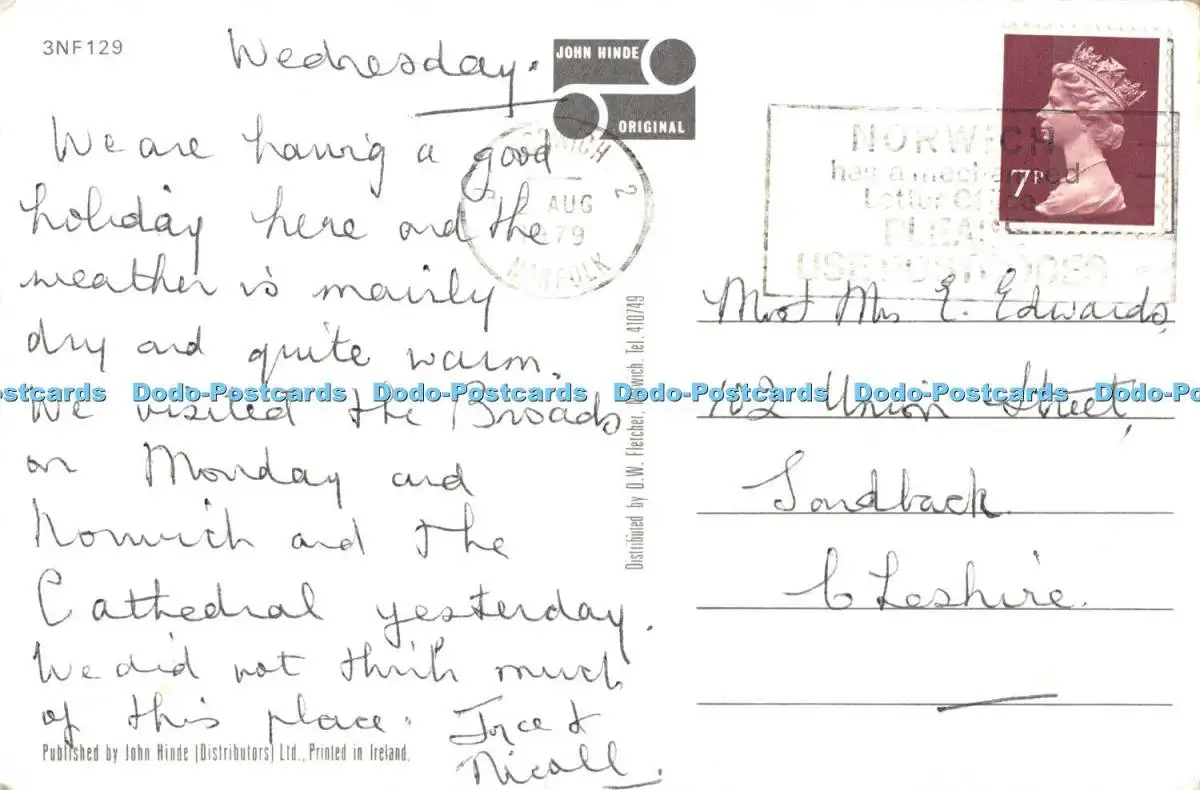 3NF129
Wednesday.
JOHN HINDE
ORIGINAL
We are having a good
holiday here and the
weather is mainly
dry and quite warm.
We visited the Broads
on Monday and
Norwich and the
Cathedral yesterday.
We did not think much
of this place.
Joyce &
Published by John Hinde (Distributors) Ltd., Printed in Ireland.
Distributed by D.W. Fletcher, Norwich. Tel. 410749
AUG
79
NORFOLK
NORWICH
has a mechanised
Letter Office
PLEASE
USE POSTCODES
7P
Mr & Mrs E. Edwards,
102 Union Street,
Sandbach
Cheshire.
Dodo-Postcards Dodo-Postcards Dodo-Postcards Dodo-Postcards Dodo-Postcards